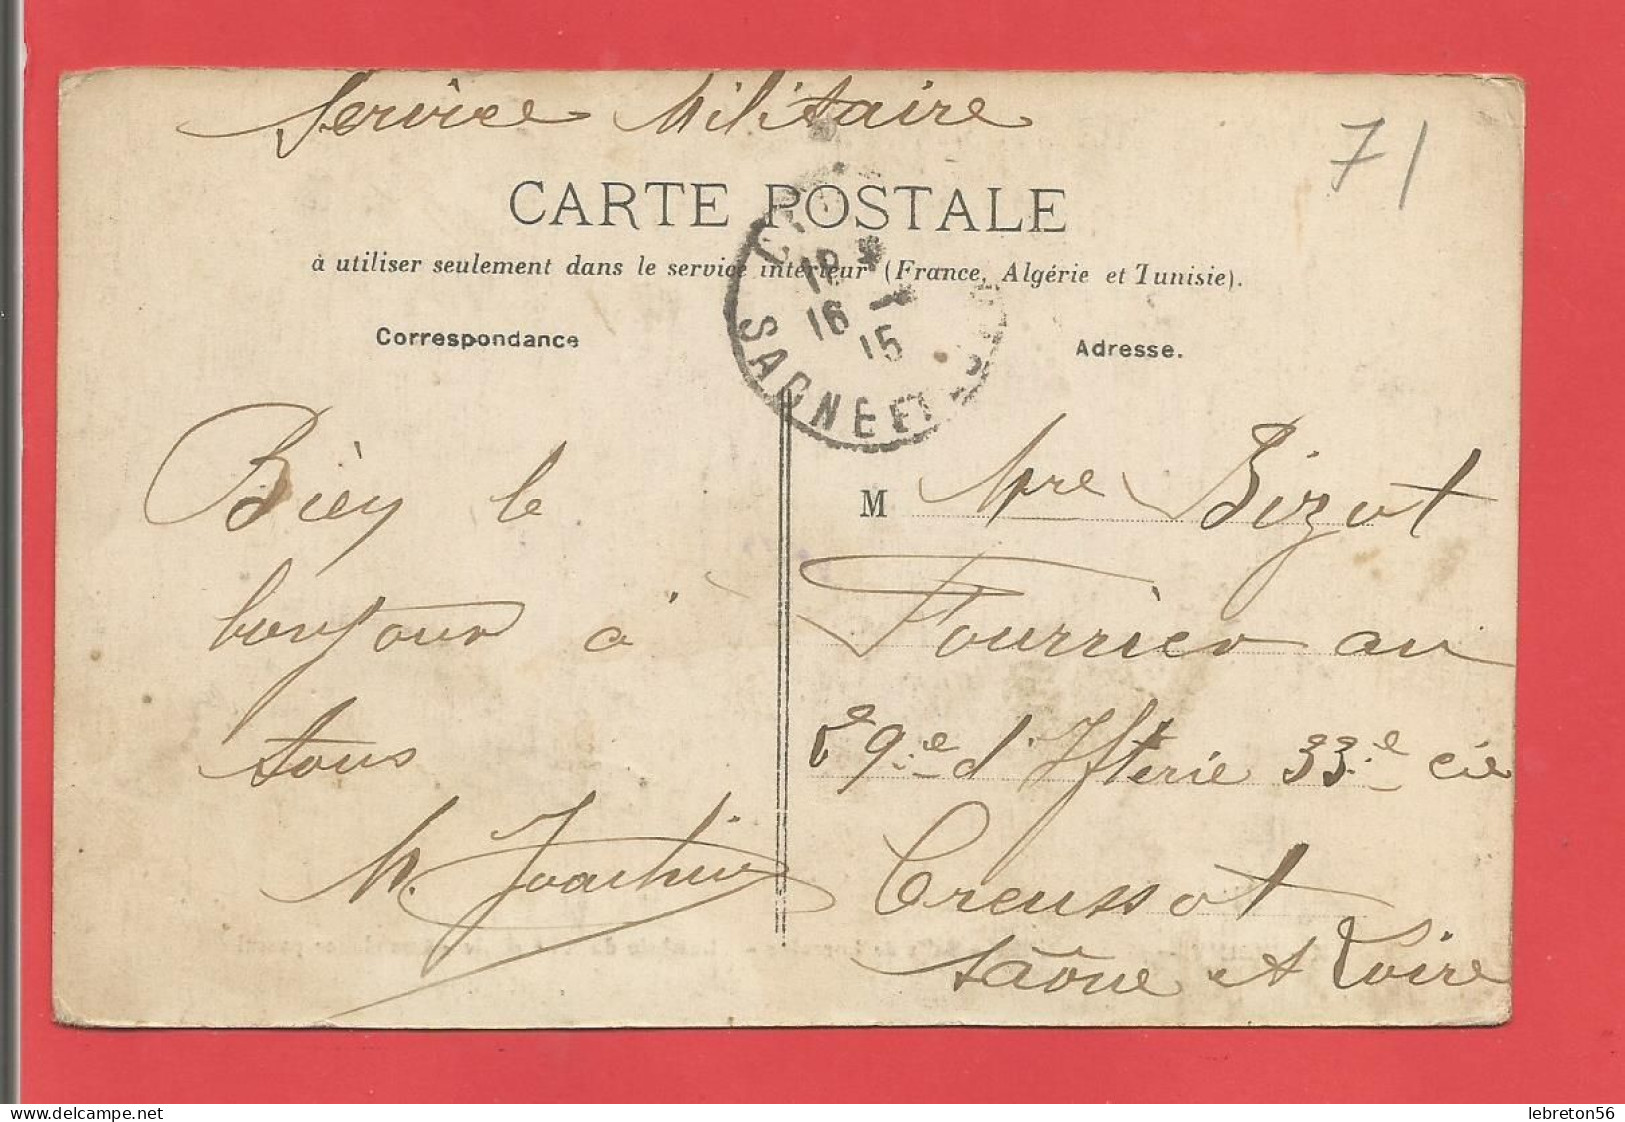 Service Militaire
71
CARTE POSTALE
à utiliser seulement dans le service intérieur (France, Algérie et Tunisie).
18 *
16 - 1
15
SAONE ET
Correspondance
Adresse.
Bièy le
bonjour à
tous
M. Joachin
M Bizot
Fourrier au
29e d'Ifterie 33e cie
Creussot
Saône et Loire
lebreton56